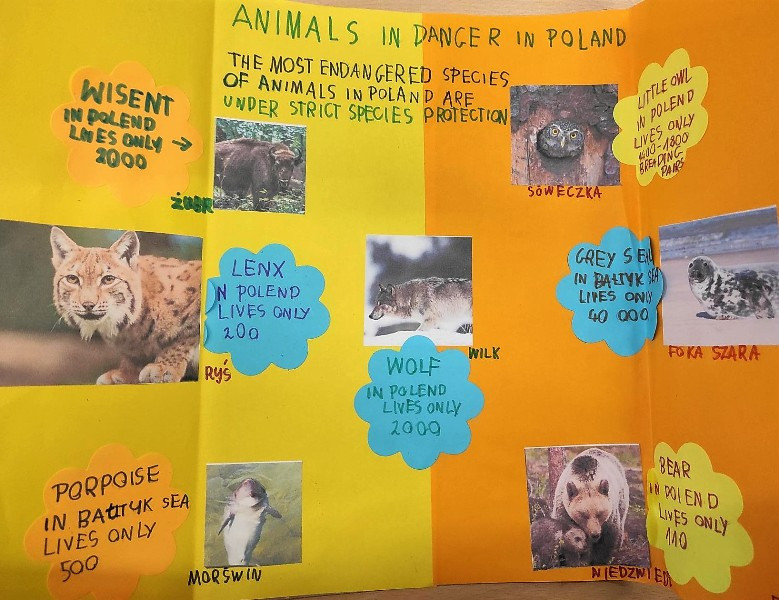 ANIMALS IN DANGER IN POLAND
THE MOST ENDANGERED SPECIES
OF ANIMALS IN POLAND ARE
UNDER STRICT SPECIES PROTECTION
WISENT
IN POLEND
LIVES ONLY →
2000
ŻUBR
LITTLE OWL
IN POLEND
LIVES ONLY
1600-1800
BREADING
PAIRS
SÓWECZKA
LENX
N POLEND
LIVES ONLY
200
RYŚ
WOLF
IN POLEND
LIVES ONLY
2000
WILK
GREY SEAL
IN BAŁTYK SEA
LIVES ONLY
40 000
FOKA SZARA
PORPOISE
IN BAŁTYK SEA
LIVES ONLY
500
MORŚWIN
BEAR
IN POLEND
LIVES ONLY
110
NIEDZWIEDŹ